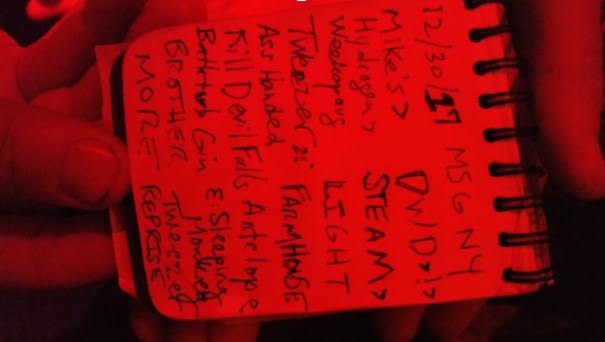 12/30/17 MSG NY
Mike's > DWD > ! >
Hydrogen > STEAM >
Weekapaug LIGHT
Tweezer 2: FARMHOUSE
Ass Handed
Kill Devil Falls Antelope
Bathtub Gin E: Sleeping
Monkey
BROTHER Tweezer
MORE REPRISE